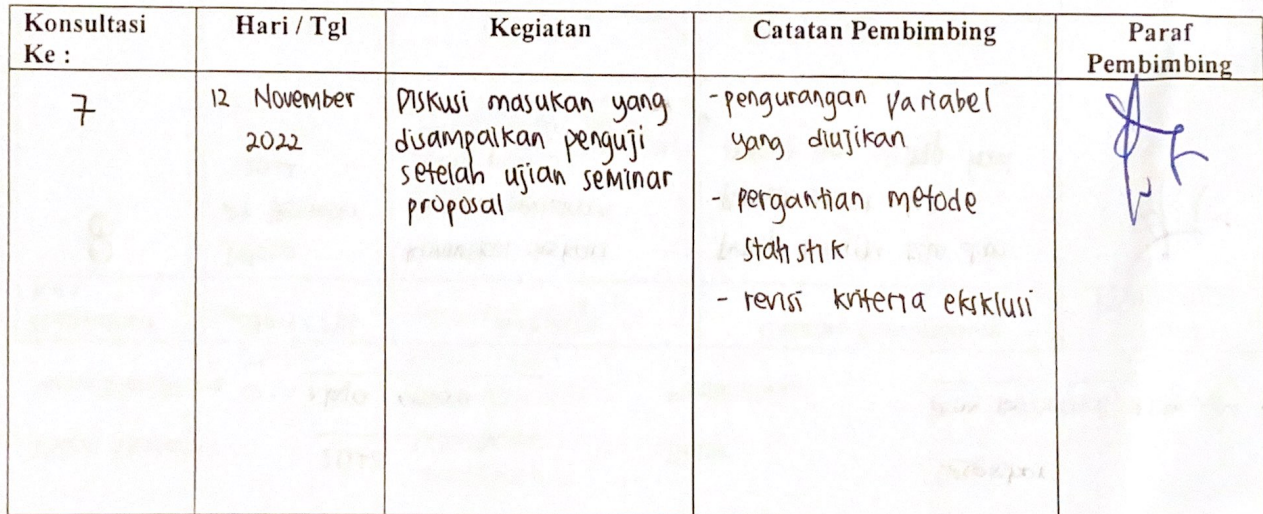 Konsultasi Ke :
Hari / Tgl
Kegiatan
Catatan Pembimbing
Paraf Pembimbing
7
12 November
2022
Diskusi masukan yang
disampaikan penguji
setelah ujian seminar
proposal
- pengurangan variabel
yang diujikan
- pergantian metode
statistik
- revisi kriteria eksklusi